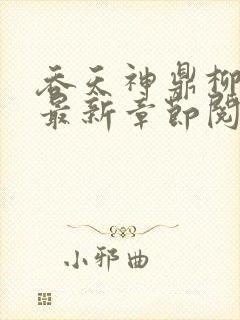 吞天神鼎柳
最新章节阅
小邪曲